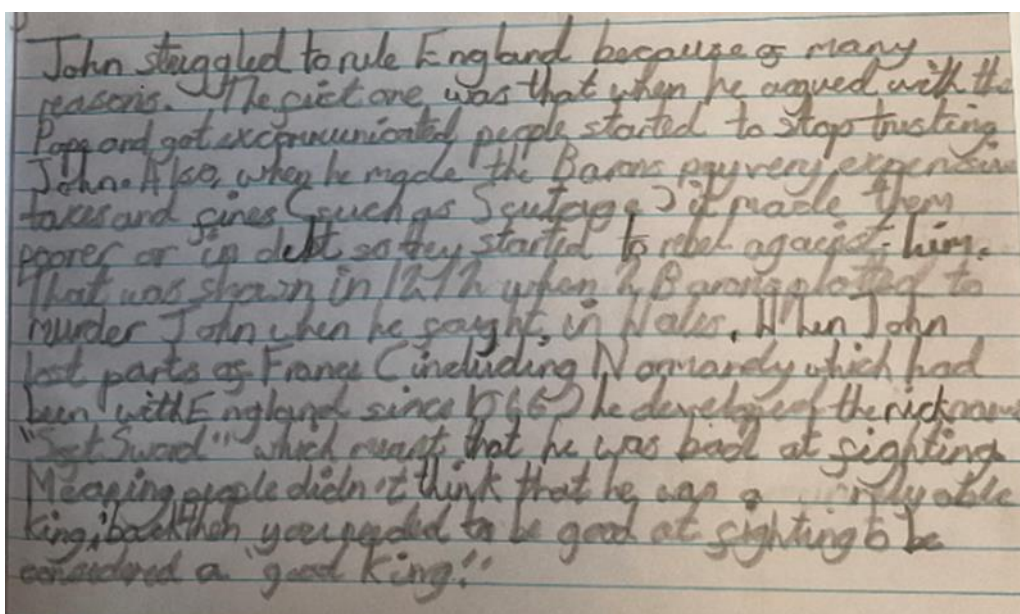 John struggled to rule England because of many
reasons. The first one was that when he argued with the
Pope and got excommunicated people started to stop trusting
John. Also, when he made the Barons pay very expensive
taxes and fines (such as Scutage) it made them
poorer or in debt so they started to rebel against him.
That was shown in 1212 when 2 Barons plotted to
murder John when he fought in Wales. When John
lost parts of France (including Normandy which had
been with England since 1066) he developed the nickname
"Soft Sword" which meant that he was bad at fighting.
Meaning people didn't think that he was a
king, back then you needed to be good at fighting to be
considered a "good king".